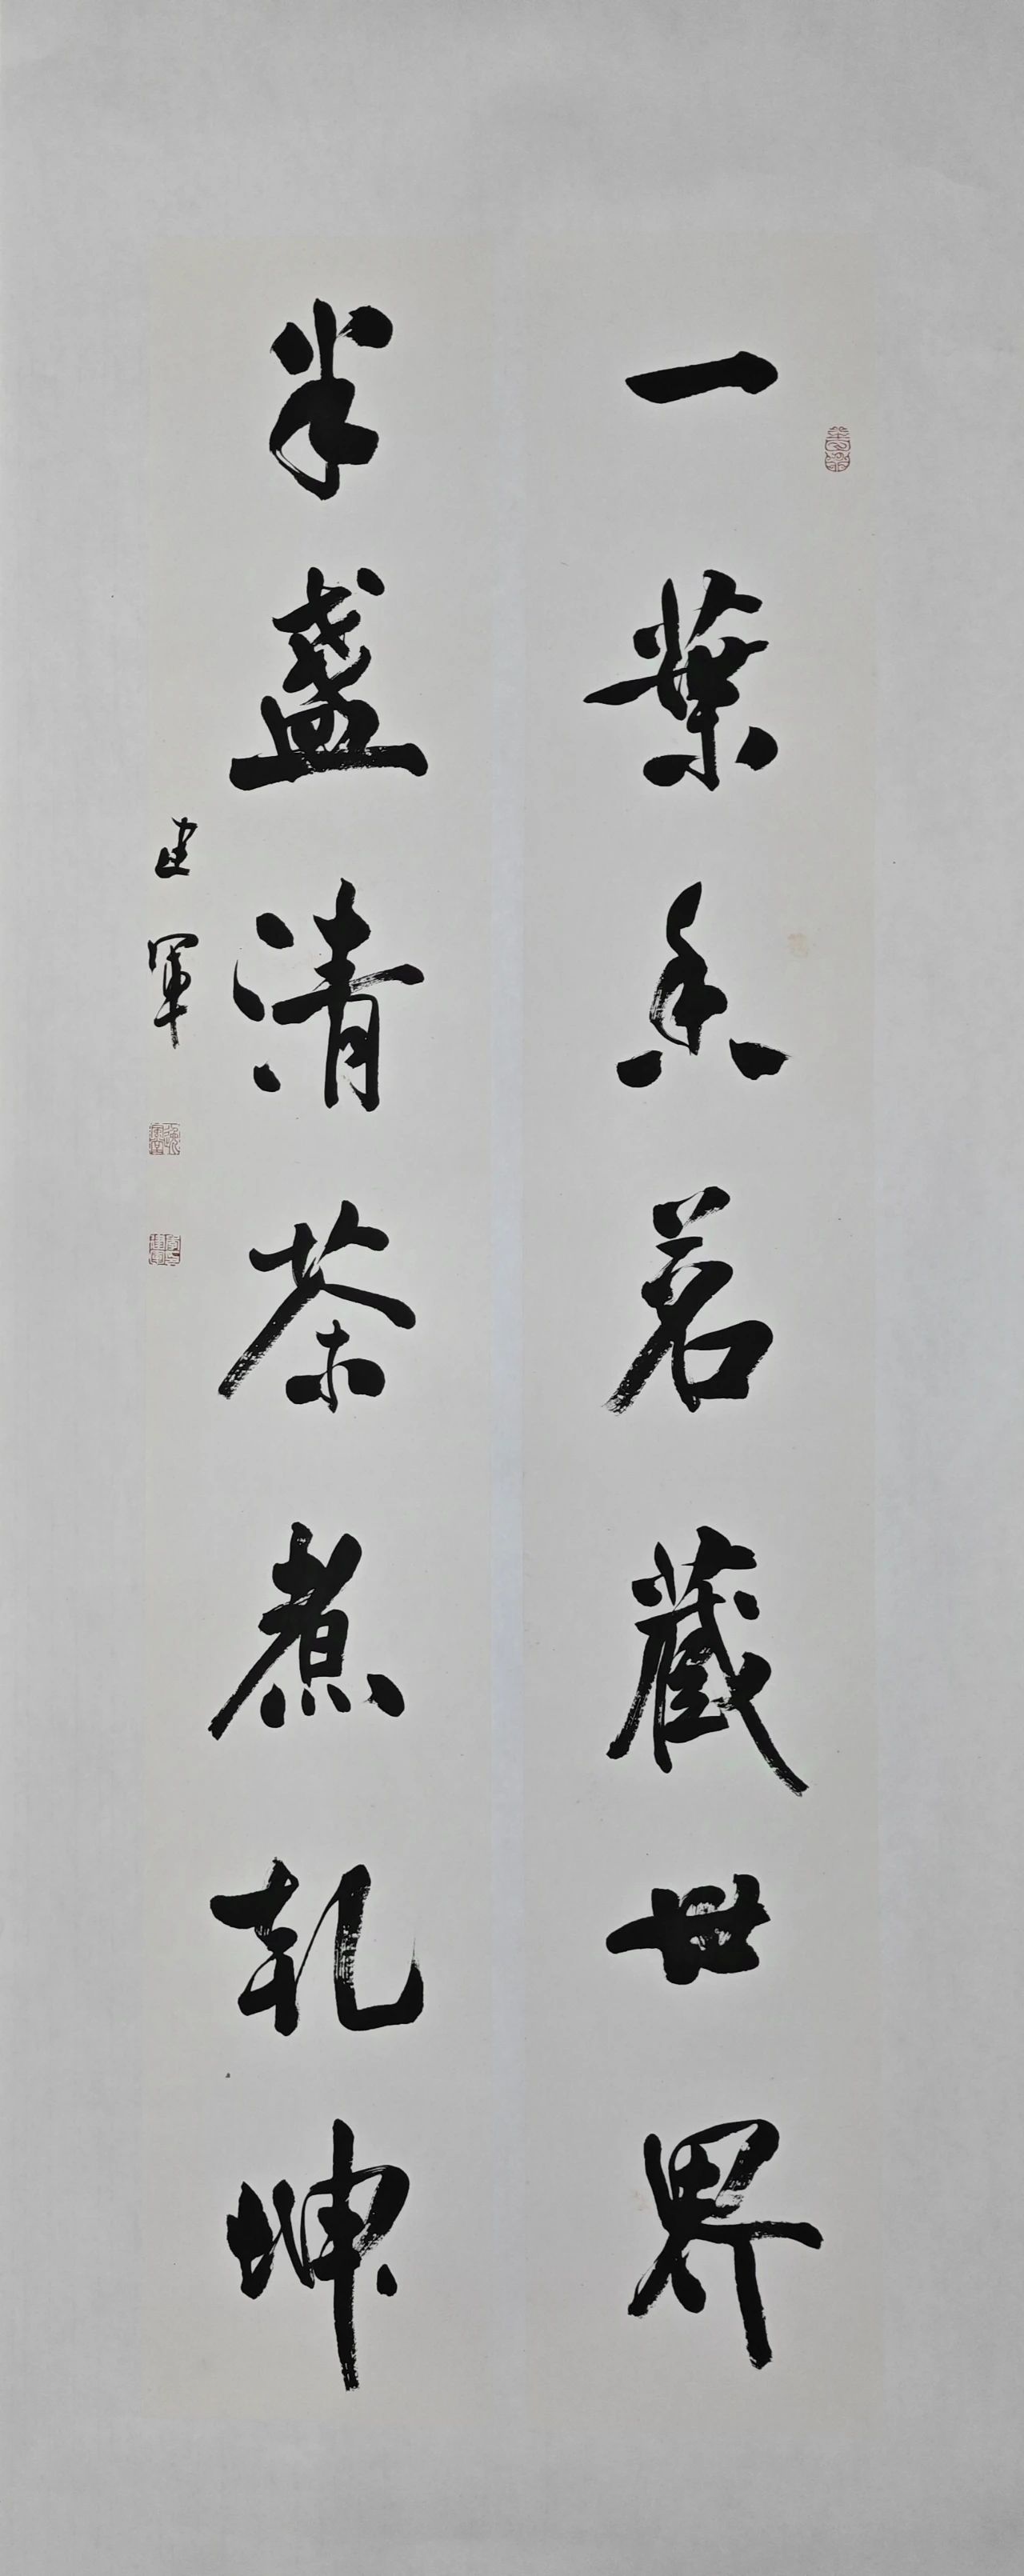 一葉香茗藏世界
半盞清茶煮乾坤
建軍